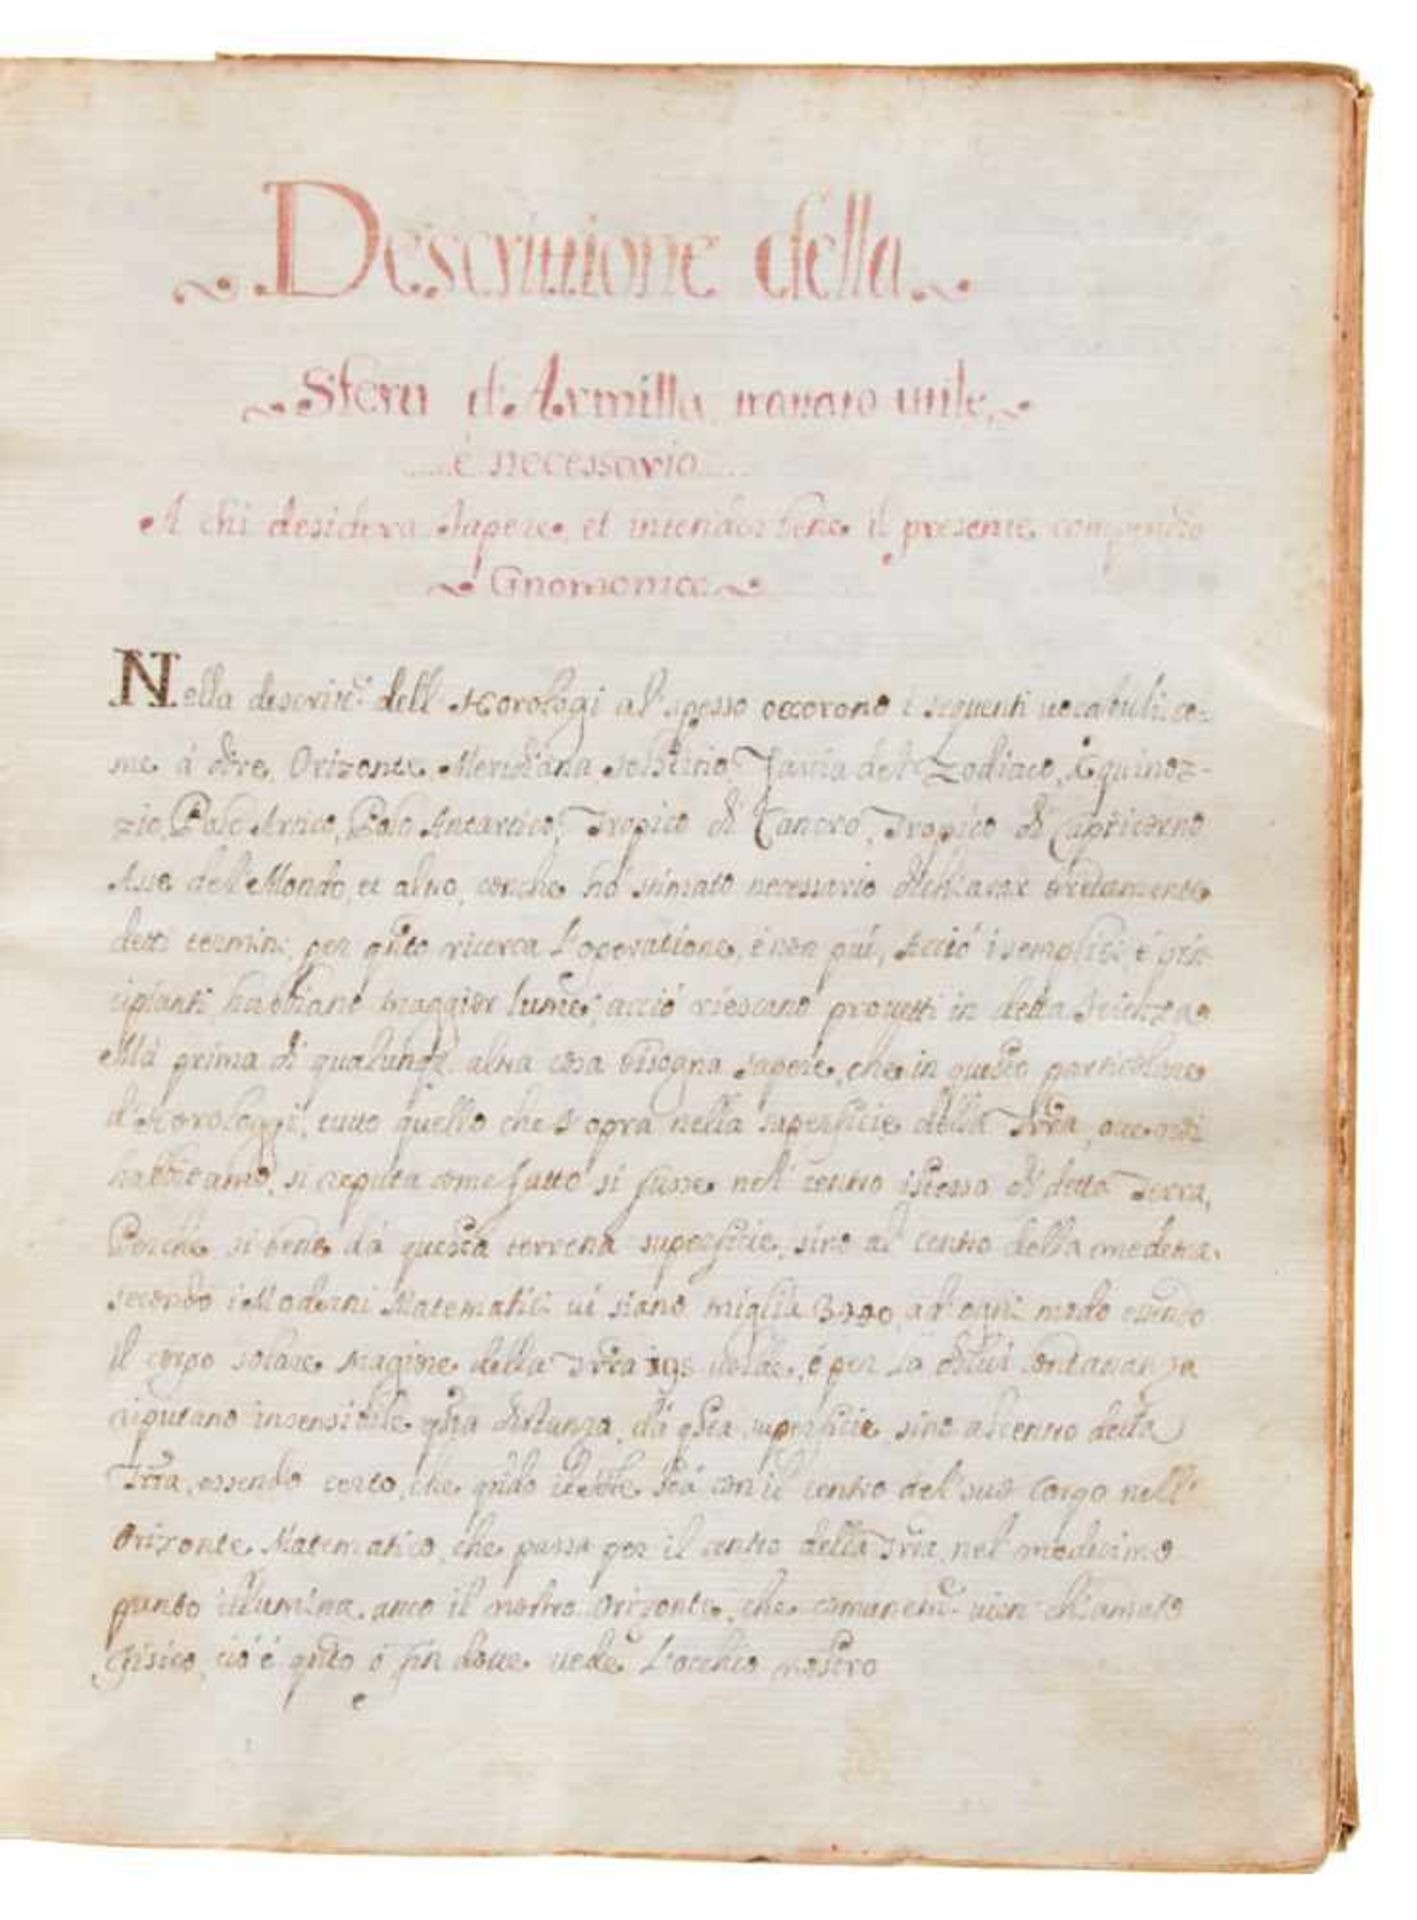 Descrittione della
Sfera d'Armilla trattato utile,
è necessario
A chi desidera sapere, et intender bene il presente compendio
Gnomonico
Nella descritt.e dell Horologi al spesso occorono i seguenti vocabuli, co-
me à dire, Orizonte, Meridiana, Solstitio, Fascia del Zodiaco, Equinoz-
zio, Polo Artico, Polo Antartico, Tropico di Cancro, Tropico di Capricorno
Asse del Mondo, et altro, ho stimato necessario dichiarar
detti termini per qnto ricerca l'operatione, è non più, Acciò i semplici, é prin-
cipianti habbiano maggior lume, acciò riescano provetti in detta Scienza.
Mà prima di qualunq. altra cosa bisogna sapere, che in questo particolare
d'Horologgi, tutto quello che s'opra nella superficie della Trra, ove noi
habbitiamo, si reputa come fatto si fusse nel centro istesso di detta Terra,
Perche si bene dà questa terrena superficie, sino al centro della medema,
secondo i Moderni Matematici vi siano miglia ad ogni modo essendo
il corpo solare Magiore della Trra volte, é per la di lui lontananza
riputano insensibile qsta distanza, dà qsta superficie, sino al centro della
Trra, essendo certo, che qndo il stà con il centro del suo Corpo nell'
Orizonte Matematico, che passa per il centro della Trra, nel medesimo
punto illumina anco il nostro Orizonte, che comunem.e vien chiamato
Fisico, cio é qnto ó fin dove vede l'occhio nostro